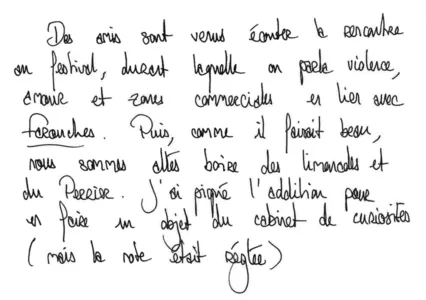 Des amis sont venus écouter la rencontre
au festival, durant laquelle on parla violence,
amour et zones commerciales en lien avec
Farouches. Puis, comme il faisait beau,
nous sommes allés boire des limonades et
du Perrier. J'ai piqué l'addition pour
en faire un objet du cabinet de curiosités
(mais la note était réglée)